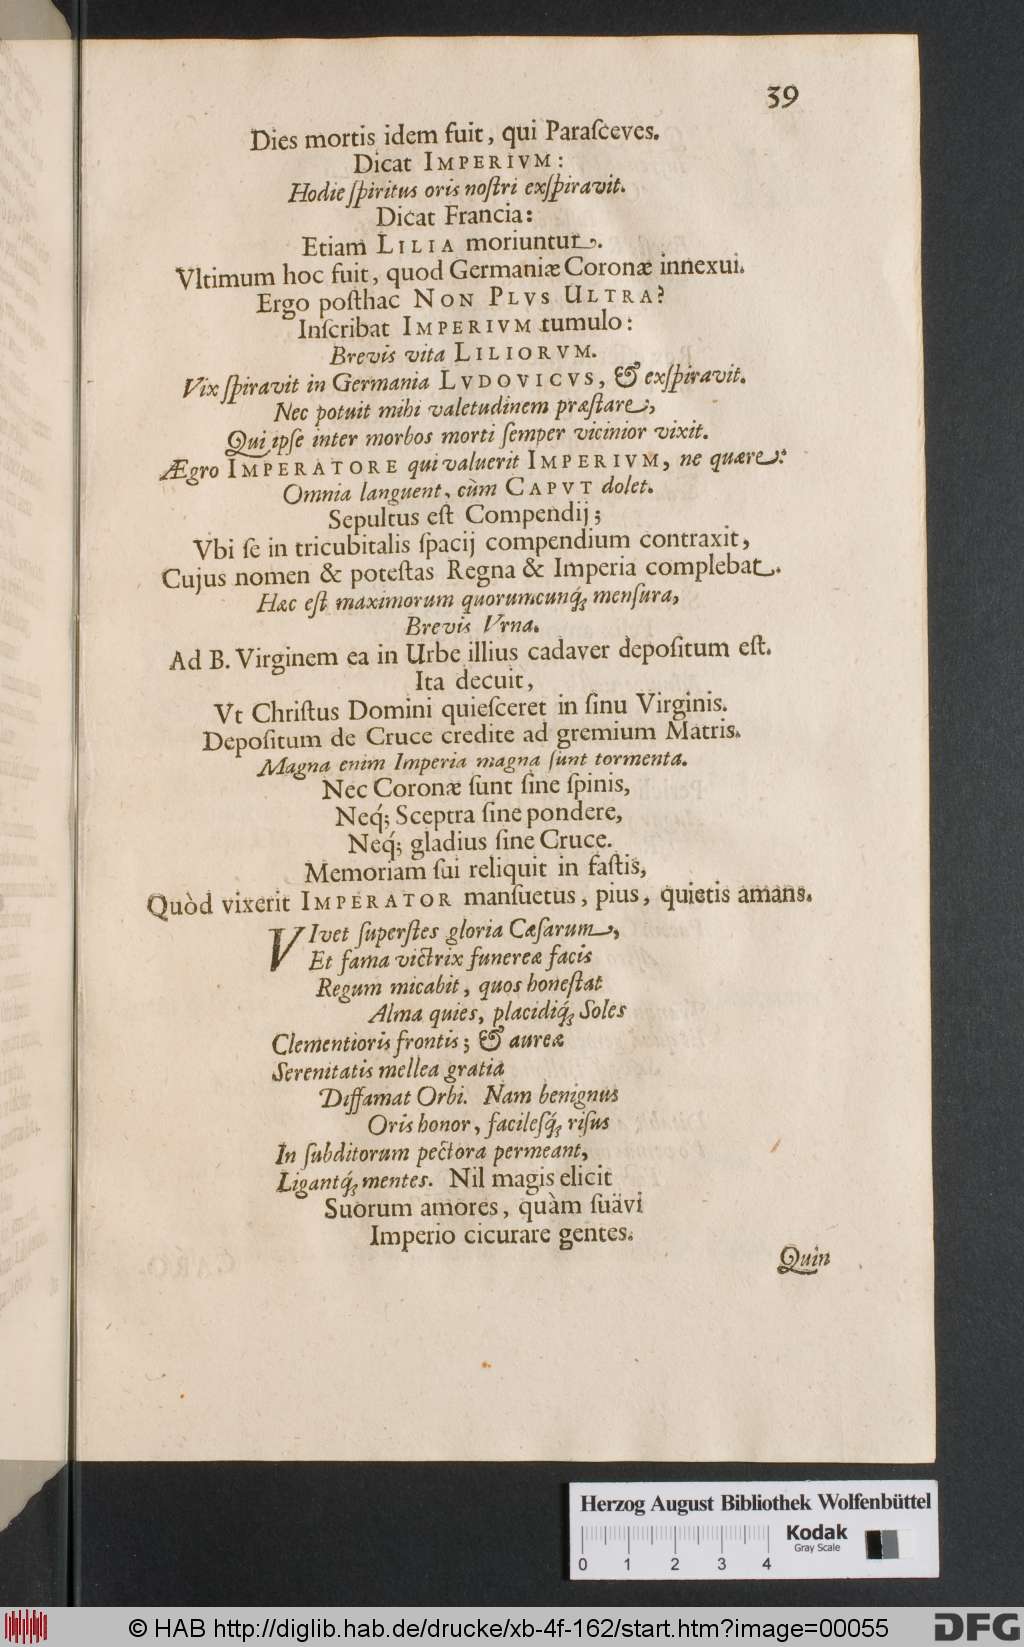 39
Dies mortis idem fuit, qui Paraſceves.
Dicat IMPERIVM:
Hodie ſpiritus oris noſtri exſpiravit.
Dicat Francia:
Etiam LILIA moriuntur.
Vltimum hoc fuit, quod Germaniæ Coronæ innexui.
Ergo poſthac NON PLVS ULTRA?
Inſcribat IMPERIVM tumulo:
Brevis vita LILIORVM.
Vix ſpiravit in Germania LVDOVICVS, & exſpiravit.
Nec potuit mihi valetudinem præſtare,
Qui ipſe inter morbos morti ſemper vicinior vixit.
Ægro IMPERATORE qui valuerit IMPERIVM, ne quære:
Omnia languent, cùm CAPVT dolet.
Sepultus eſt Compendij;
Vbi ſe in tricubitalis ſpacij compendium contraxit,
Cujus nomen & poteſtas Regna & Imperia complebat.
Hæc eſt maximorum quorumcunq́; menſura,
Brevis Vrna.
Ad B. Virginem ea in Urbe illius cadaver depoſitum eſt.
Ita decuit,
Vt Chriſtus Domini quieſceret in ſinu Virginis.
Depoſitum de Cruce credite ad gremium Matris.
Magna enim Imperia magna ſunt tormenta.
Nec Coronæ ſunt ſine ſpinis,
Neq́; Sceptra ſine pondere,
Neq́; gladius ſine Cruce.
Memoriam ſui reliquit in faſtis,
Quòd vixerit IMPERATOR manſuetus, pius, quietis amans.
VIvet ſuperſtes gloria Cæſarum,
Et fama victrix funereæ facis
Regum micabit, quos honeſtat
Alma quies, placidiq́; Soles
Clementioris frontis; & aureæ
Serenitatis mellea gratia
Diffamat Orbi. Nam benignus
Oris honor, facileſq́; riſus
In ſubditorum pectora permeant,
Ligantq́; mentes. Nil magis elicit
Suorum amores, quàm ſuävi
Imperio cicurare gentes.
Quin
Herzog August Bibliothek Wolfenbüttel
Kodak
Gray Scale
0 1 2 3 4
© HAB http://diglib.hab.de/drucke/xb-4f-162/start.htm?image=00055
DFG